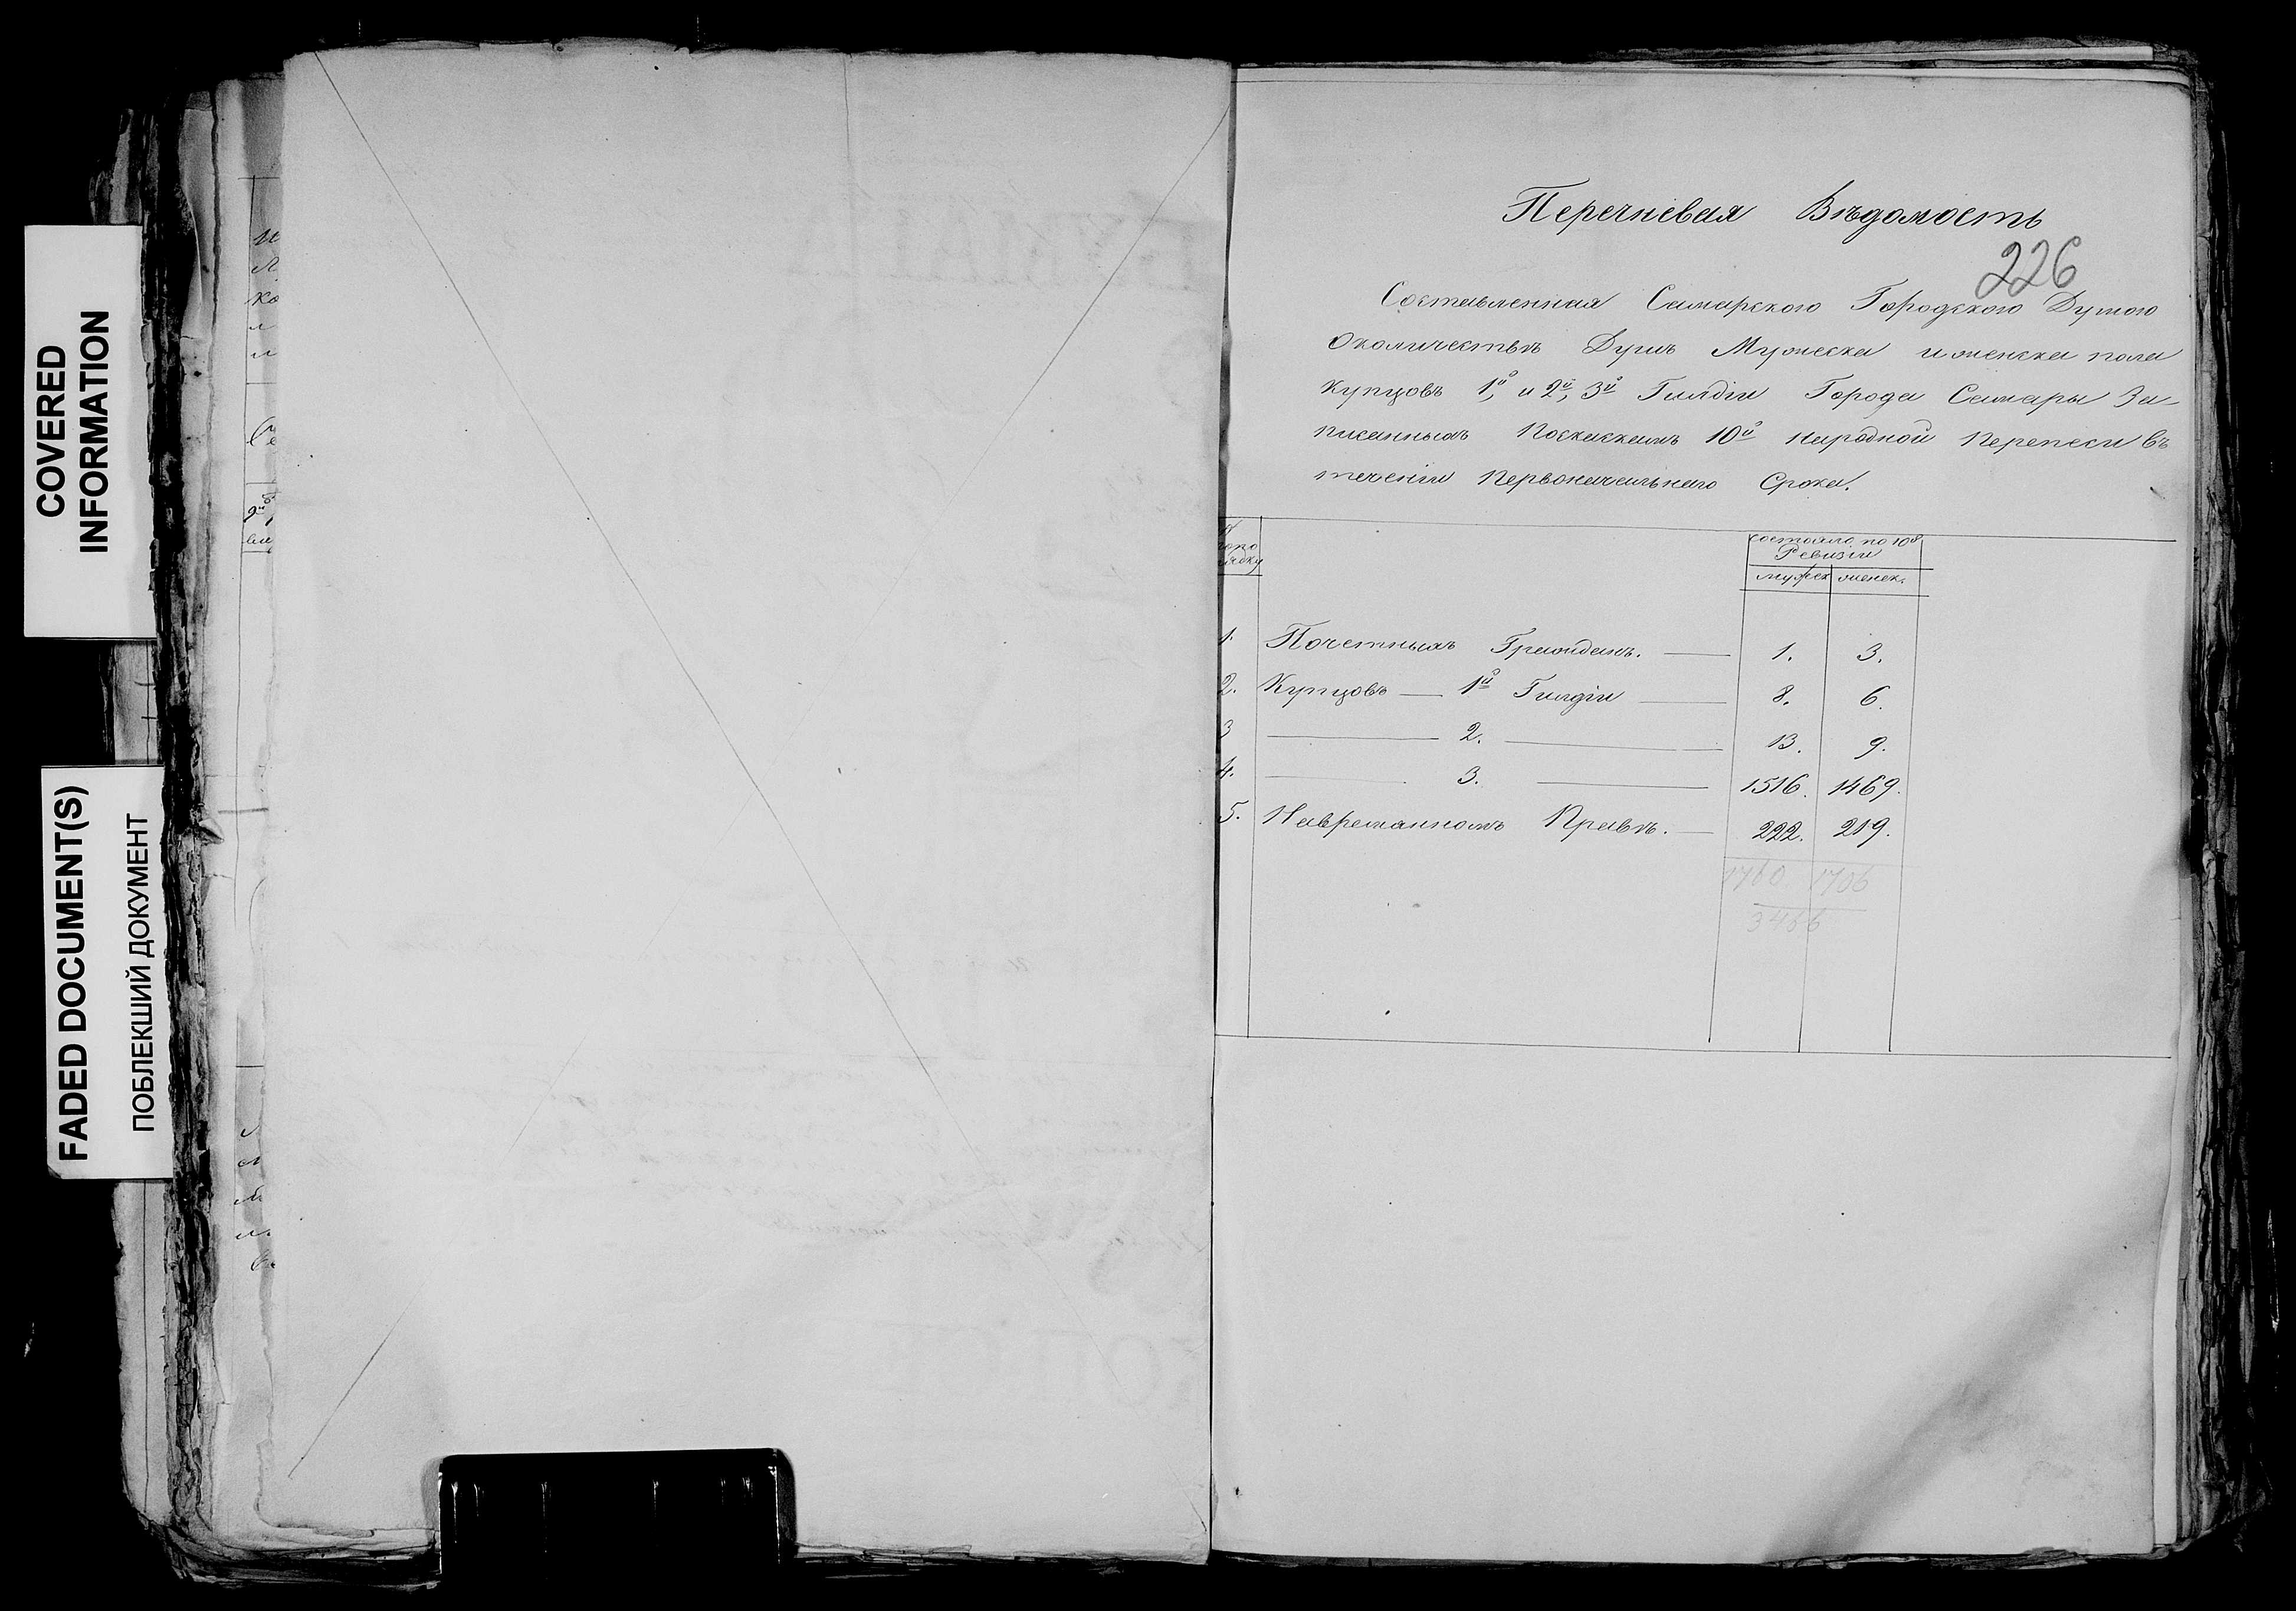 COVERED
INFORMATION
FADED DOCUMENT(S)
ПОБЛЕКШИЙ ДОКУМЕНТ
Перечневая Вѣдомость
226
Составленная Самарскою Городскою Думою
Околичествѣ Душъ Мужеска иженска пола
купцовъ 1й, и 2й, 3й Гилдіи Города Самары За-
писанныхъ Поскаскамъ 10й народной Переписи Въ
теченіи Первоначальнаго Срока.
состояло по 10й
Ревизіи
мужск женск.
1. Почетныхъ Гражданъ. — 1. 3.
2. Купцовъ — 1й Гилдіи — 8. 6.
3 — 2. — 13. 9.
4. — 3. — 1516. 1469.
5. Навременномъ Правѣ. — 222. 219.
1760 1706
3466